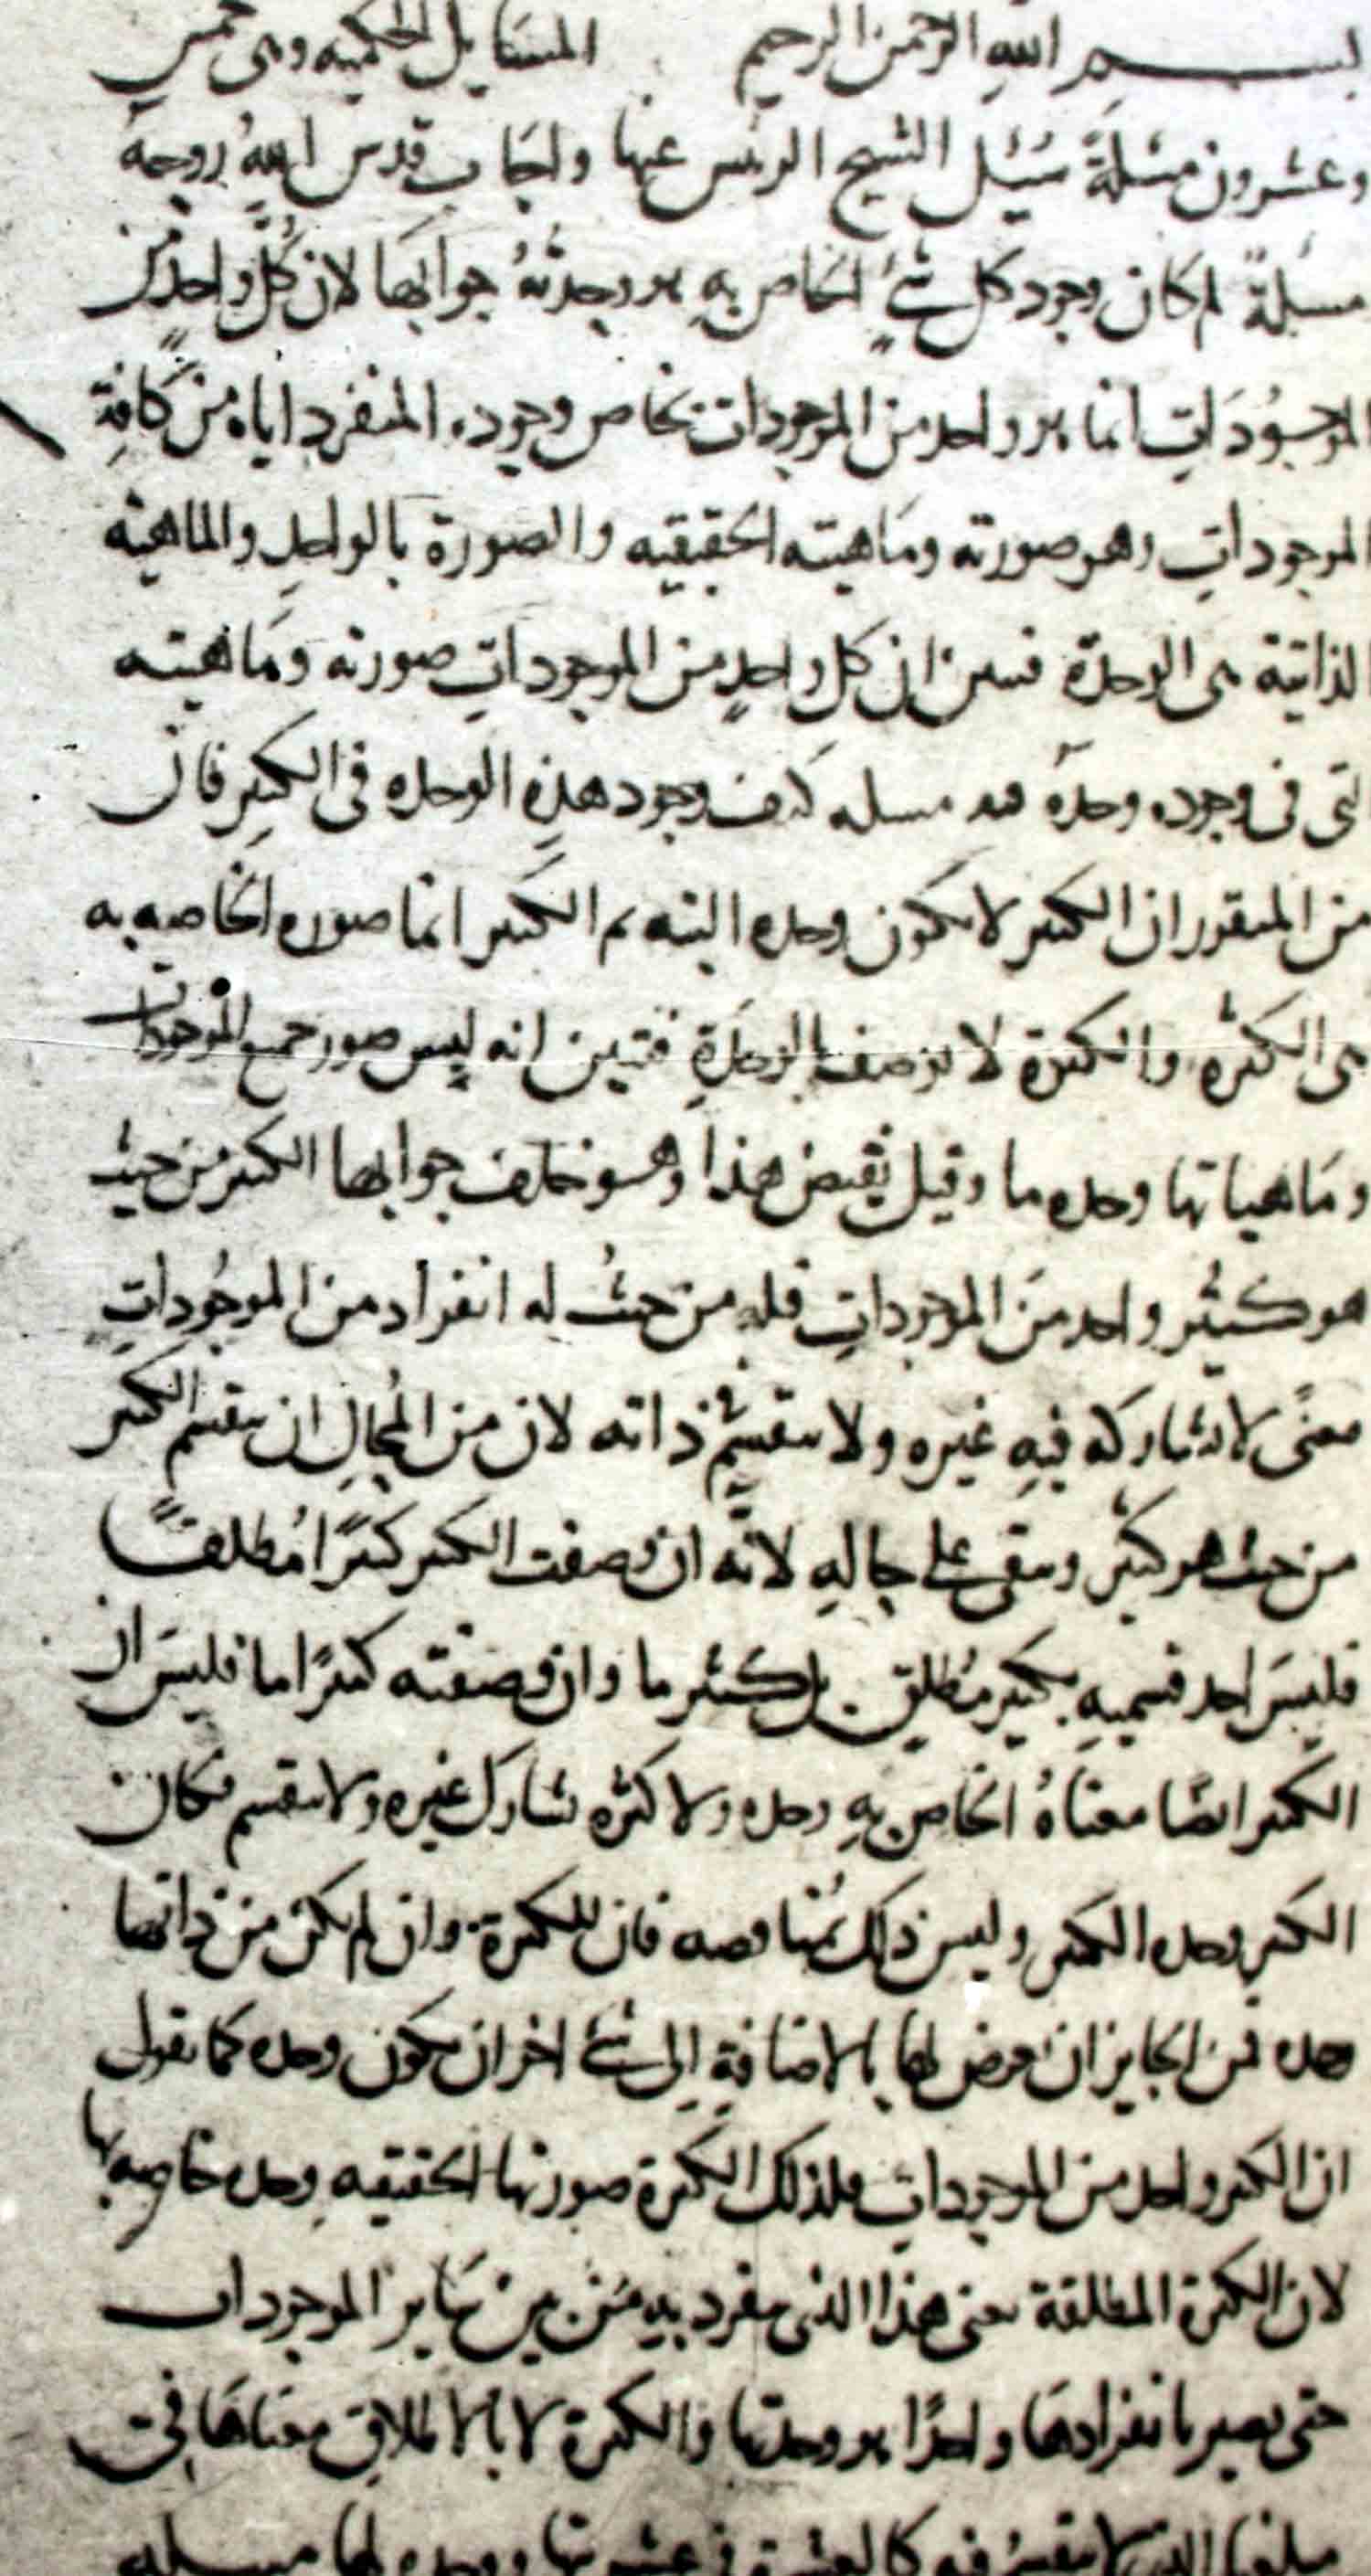 بسم الله الرحمن الرحيم المسايل الحكميه وهى خمس
وعشرون مسئلة سئل الشيخ الرئيس عنها واجاب قدس الله روحه
مسئلة لم كان وجود كل شئ الخاص به هو وحدته جوابها لان كل واحد من
الموجودات انما هو واحد من الموجودات بخاص وجوده المنفرد اياه من كافة
الموجودات وهو صورته وماهيته الحقيقيه والصورة بالواحد والماهية
الذاتية هى الوحدة فتبين ان كل واحد من الموجودات صورته وماهيته
التى فى وجوده وحدة مسله كيف وجود هذه الوحده فى الكثير فان
من المتقرر ان الكثير لا يكون وحده البته ثم الكثير انما صوره الخاصه به
هى الكثره والكثرة لا توصف بالوحدة فتبين انه ليس صور جميع الموجودات
وماهياتها وحده ما وقيل نقيض هذا وهو خلف جوابها الكثير من حيث
هو كثير واحد من الموجودات فله من حيث له انفراد من الموجودات
معنى لا يشاركه فيه غيره ولا ينقسم فى ذاته لان من المحال ان ينقسم الكثير
من حيث هو كثير ويبقى على حاله لانه ان وصفت الكثير كثيرا مطلقا
فليس احد قسميه بكثير مطلق بل كثير ما وان وصفته كثيرا ما فليس ان
الكثير ايضا معناه الخاص به وحده ولا كثره تشارك غيره ولا ينقسم فكان
الكثير وحده الكثير وليس ذلك بمناقضه فان للكثرة وان لم يكن من ذاتها
وحده فمن الجايز ان يعرض لها بالاضافة الى شئ اخر ان يكون وحده كما نقول
ان الكثير واحد من الموجودات فلذلك الكثرة صورتها الحقيقيه وحده خاصه بها
لان الكثرة المطلقة معنى هذا الذى ينفرد به من بين ساير الموجودات
حتى يصير بانفرادها واحدا هو وحدتها والكثرة لا بالاطلاق معناها فى